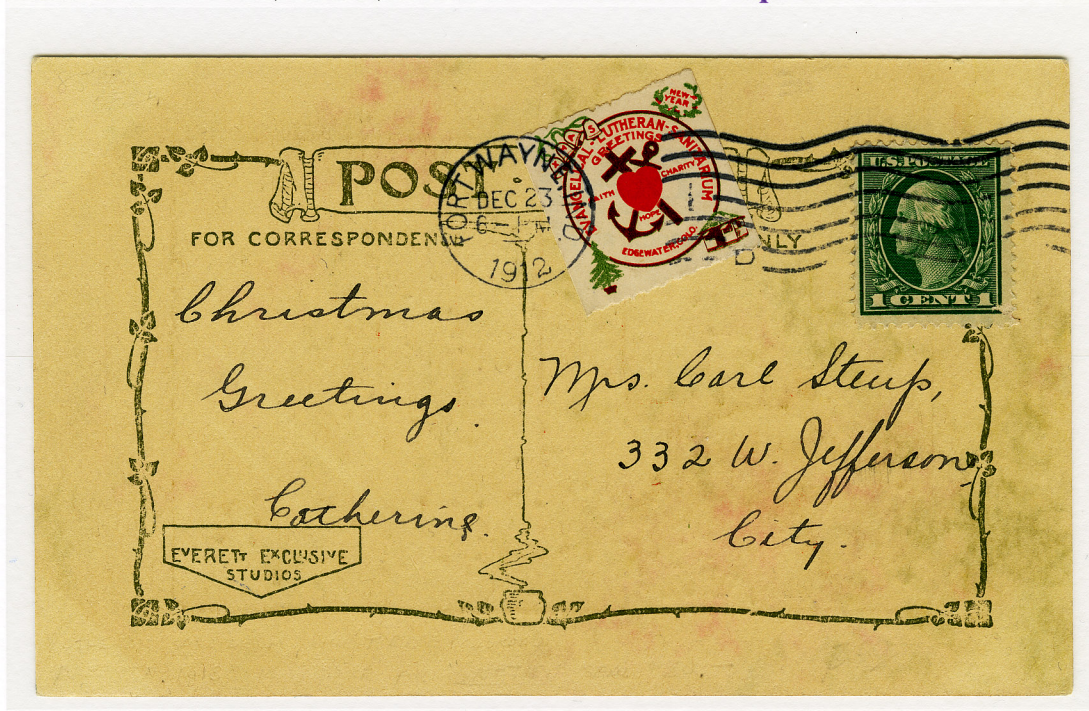 POST
FOR CORRESPONDENCE
FORT WAYNE
DEC 23
1912
D
XMAS
NEW YEAR
EVANGELICAL-LUTHERAN-SANITARIUM
GREETINGS
FAITH
CHARITY
HOPE
EDGEWATER, COLO.
ONLY
U.S. POSTAGE
1 CENT 1
Christmas
Greetings.
Catherine.
Mrs. Carl Steup,
332 W. Jefferson,
City.
EVERETT EXCLUSIVE
STUDIOS